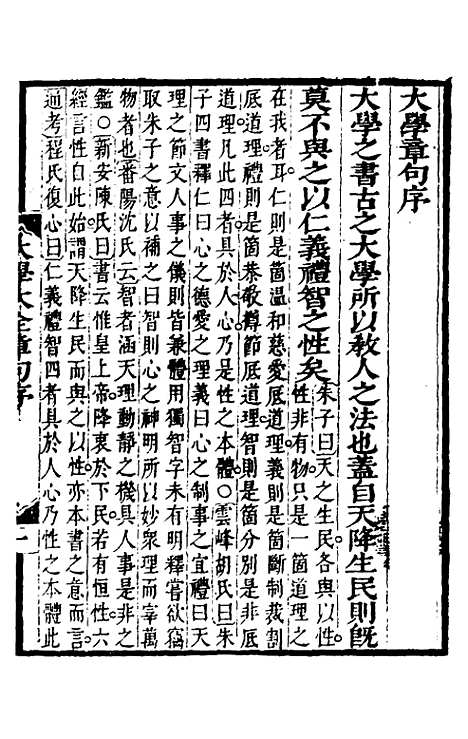 大學章句序
大學之書古之大學所以教人之法也蓋自天降生民則旣
莫不與之以仁義禮智之性矣朱子曰天之生民各與以性
性非有物只是一箇道理之
在我者耳仁則是箇溫和慈愛底道理義則是箇斷制裁割
底道理禮則是箇恭敬撙節底道理智則是箇分別是非底
道理凡此四者具於人心乃是性之本體○雲峰胡氏曰朱
子四書釋仁曰心之德愛之理義曰心之制事之宜禮曰天
理之節文人事之儀則皆兼體用獨智字未有明釋嘗欲竊
取朱子之意以補之曰智則心之神明所以妙衆理而宰萬
物者也番陽沈氏云智者涵天理動靜之機具人事是非之
鑑○新安陳氏曰書云惟皇上帝降衷於下民若有恒性六
經言性自此始謂天降生民而與之以性亦本書之意而言
通考程氏復心曰仁義禮智四者具於人心乃性之本體此
大學大全章句序
一